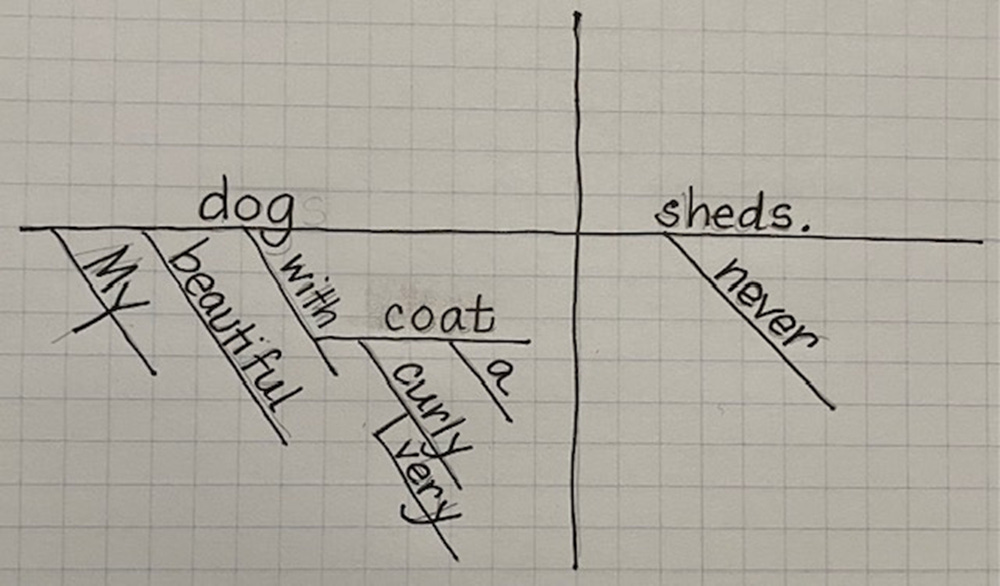 dog sheds.
My beautiful with never
coat
curly a
very